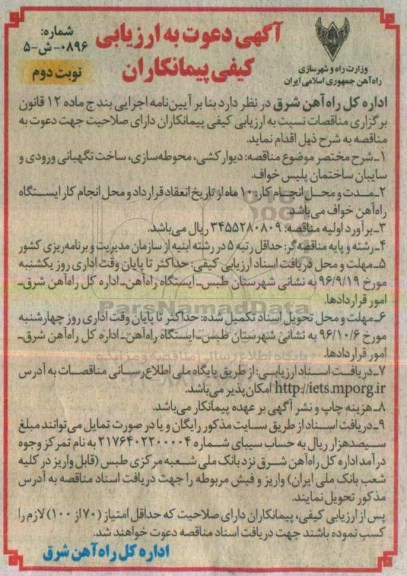 آگهی دعوت به ارزیابی
کیفی پیمانکاران
شماره:
۰۸۹۶-ش-۵
نوبت دوم
وزارت راه و شهرسازی
راه‌آهن جمهوری اسلامی ایران
اداره کل راه‌آهن شرق در نظر دارد بنا بر آیین‌نامه اجرایی بند ج ماده ۱۲ قانون
برگزاری مناقصات نسبت به ارزیابی کیفی پیمانکاران دارای صلاحیت جهت دعوت به
مناقصه به شرح ذیل اقدام نماید.
۱ـ شرح مختصر موضوع مناقصه: دیوارکشی، محوطه‌سازی، ساخت نگهبانی ورودی و
سایبان ساختمان پلیس خواف.
۲ـ مدت و محل انجام کار: ۱۰ ماه از تاریخ انعقاد قرارداد و محل انجام کار ایستگاه
راه‌آهن خواف می‌باشد.
۳ـ برآورد اولیه مناقصه: ۳۴۵۵۲۸۰۸۰۹ ریال می‌باشد.
۴ـ رشته و پایه مناقصه‌گر: حداقل رتبه ۵ در رشته ابنیه از سازمان مدیریت و برنامه‌ریزی کشور
۵ـ مهلت و محل دریافت اسناد ارزیابی کیفی: حداکثر تا پایان وقت اداری روز یکشنبه
مورخ ۹۶/۹/۱۹ به نشانی شهرستان طبس-ایستگاه راه‌آهن-اداره کل راه‌آهن شرق-
امور قراردادها.
۶ـ مهلت و محل تحویل اسناد تکمیل شده: حداکثر تا پایان وقت اداری روز چهارشنبه
مورخ ۹۶/۱۰/۶ به نشانی شهرستان طبس-ایستگاه راه‌آهن-اداره کل راه‌آهن شرق-
امور قراردادها.
۷ـ دریافت اسناد ارزیابی: از طریق پایگاه ملی اطلاع‌رسانی مناقصات به آدرس
http://iets.mporg.ir امکان‌پذیر می‌باشد.
۸ـ هزینه چاپ و نشر آگهی بر عهده پیمانکار می‌باشد.
۹ـ دریافت اسناد از طریق سایت مذکور رایگان و یا در صورت تمایل می‌توانند مبلغ
سیصدهزار ریال به حساب سیبای شماره ۲۱۷۶۴۰۲۲۰۰۰۰۴ به نام تمرکز وجوه
درآمد اداره کل راه‌آهن شرق نزد بانک ملی شعبه مرکزی طبس (قابل واریز در کلیه
شعب بانک ملی ایران) واریز و فیش مربوطه را جهت دریافت اسناد مناقصه به آدرس
مذکور تحویل نمایند.
پس از ارزیابی کیفی، پیمانکاران دارای صلاحیت که حداقل امتیاز (۷۰ از ۱۰۰) لازم را
کسب نموده باشند جهت دریافت اسناد مناقصه دعوت خواهند شد.
اداره کل راه‌آهن شرق
ParsNamadData